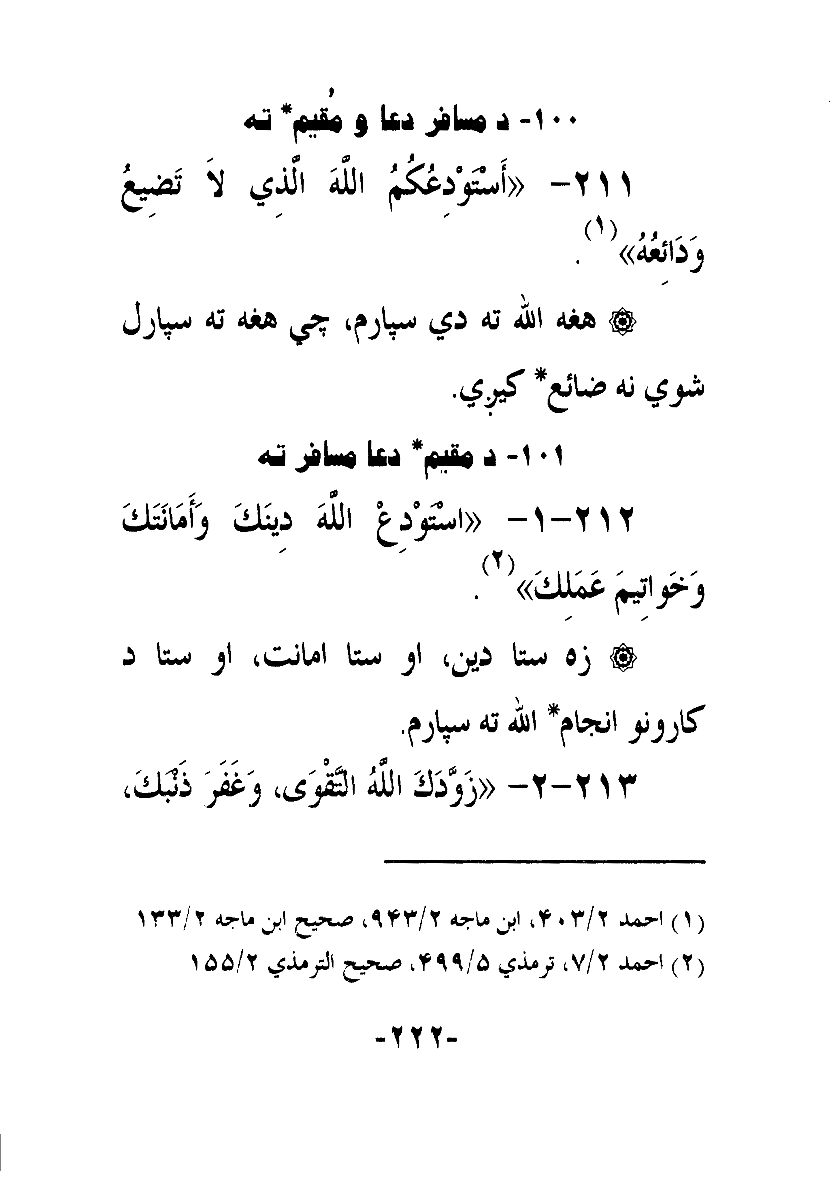 ۱۰۰- د مسافر دعا و مُقیم* تـه
۲۱۱- «أَسْتَوْدِعُكُمُ اللَّهَ الَّذِي لاَ تَضِيعُ
وَدَائِعُهُ»(۱).
۞ هغه الله ته دي سپارم، چي هغه ته سپارل
شوي نه ضائع* کیږي.
۱۰۱- د مقیم* دعا مسافر تـه
۲۱۲-۱- «اسْتَوْدِعْ اللَّهَ دِينَكَ وَأَمَانَتَكَ
وَخَوَاتِيمَ عَمَلِكَ»(۲).
۞ زه ستا دین، او ستا امانت، او ستا د
کارونو انجام* الله ته سپارم.
۲۱۳-۲- «زَوَّدَكَ اللَّهُ التَّقْوَى، وَغَفَرَ ذَنْبَكَ،
(۱) احمد ۴۰۳/۲، ابن ماجه ۹۴۳/۲، صحیح ابن ماجه ۱۳۳/۲
(۲) احمد ۷/۲، ترمذي ۴۹۹/۵، صحیح الترمذي ۱۵۵/۲
-۲۲۲-